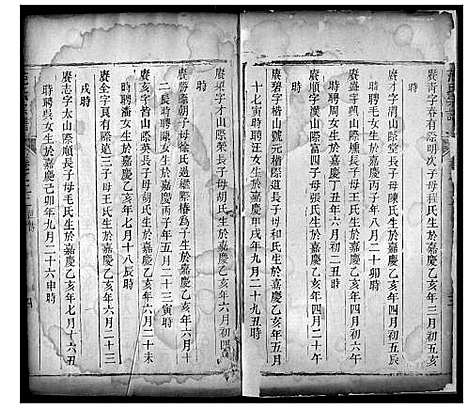 賡青字春有際明次子母 氏生於嘉慶乙亥年三月初三亥
時
賡才字清山際堂長子母陳氏生於嘉慶乙亥年四月初五辰
時聘毛女生於嘉慶丙子年八月二十卯時
賡盛字興山際 長子母 氏生於嘉慶乙亥年四月初八午
時聘周女生於嘉慶丁丑年六月初二丑時
賡順字漢山際富四子母張氏生於嘉慶乙亥年四月二十午
時
賡碧字楷山號元楷際道長子母和氏生於嘉慶乙亥年五月
十七寅時聘汪女生於嘉慶甲戌年九月二十九丑時
賡榮字才山際榮長子母胡氏生於嘉慶乙亥年六月初四
時
賡 際朝子母徐氏過繼際椿為子生於嘉慶乙亥年六月十
二辰時聘陳女生於嘉慶丙子年五月二十三寅時
賡亥字楷山際英長子母胡氏生於嘉慶乙亥年六月二十未
時聘潘女生於嘉慶乙亥年七月十八辰時
賡全字良有際 三子母王氏生於嘉慶乙亥年六月二十三
戌時
賡志字太山際順長子母毛氏生於嘉慶乙亥年七月十六丑
時聘吳女生於嘉慶己卯年九月二十六申時